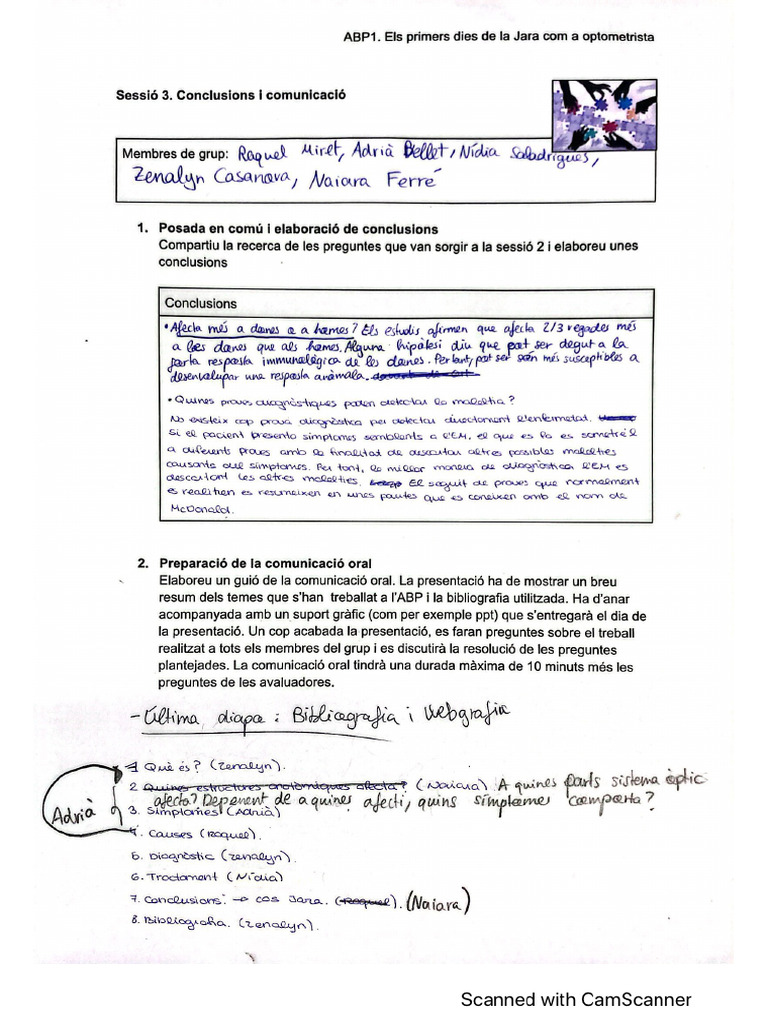 ABP1. Els primers dies de la Jara com a optometrista
Sessió 3. Conclusions i comunicació
Membres de grup: Raquel Miret, Adrià Bellet, Nídia Saladrigues,
Zenalyn Casanova, Naiara Ferré
1. Posada en comú i elaboració de conclusions
Compartiu la recerca de les preguntes que van sorgir a la sessió 2 i elaboreu unes
conclusions
Conclusions
• Afecta més a dones o a homes? Els estudis afirmen que afecta 2/3 vegades més
a les dones que als homes. Alguna hipòtesi diu que pot ser degut a la
forta resposta immunològica de les dones. Per tant, pot ser són més susceptibles a
desenvalupar una resposta anòmala.
• Quines proves diagnòstiques poden detectar la malaltia?
No existeix cap prova diagnòstica per detectar directament l'enfermetat.
Si el pacient presenta símptomes semblants a l'EM, el que es fa es sometre'l
a diferents proves amb la finalitat de descartar altres possibles malalties
causants dels símptomes. Per tant, la millor manera de diagnosticar l'EM es
descartant les altres malalties. El seguit de proves que normalment
es realitzen es resumeixen en unes pautes que es coneixen amb el nom de
McDonald.
2. Preparació de la comunicació oral
Elaboreu un guió de la comunicació oral. La presentació ha de mostrar un breu
resum dels temes que s'han treballat a l'ABP i la bibliografia utilitzada. Ha d'anar
acompanyada amb un suport gràfic (com per exemple ppt) que s'entregarà el dia de
la presentació. Un cop acabada la presentació, es faran preguntes sobre el treball
realitzat a tots els membres del grup i es discutirà la resolució de les preguntes
plantejades. La comunicació oral tindrà una durada màxima de 10 minuts més les
preguntes de els avaluadores.
- Última diapo: Bibliografia i Webgrafia
1 Què és? (Zenalyn).
2 Quines estructures anatòmiques afecta? (Naiara) A quines parts sistema òptic
afecta? Depenent de a quines afecti, quins símptomes comporta?
3. Símptomes (Adrià)
Adrià
4. Causes (Raquel).
5. Diagnòstic (Zenalyn).
6. Tractament (Nídia)
7. Conclusions: → cas Jara. (Raquel). (Naiara)
8. Bibliografia. (Zenalyn).
Scanned with CamScanner